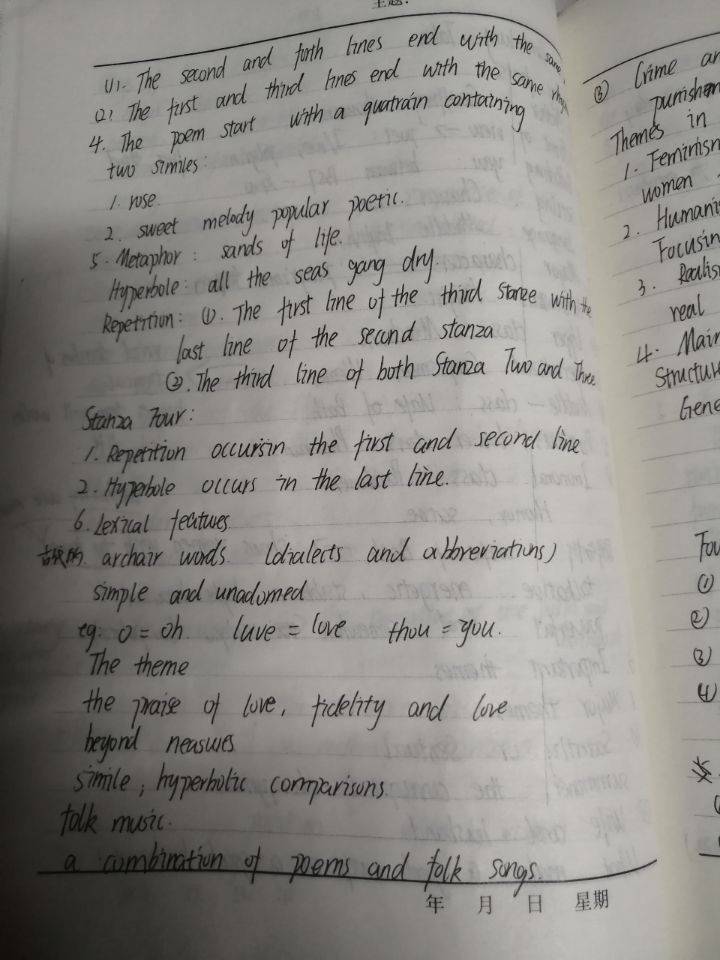 主题:
(1). The second and forth lines end with the same
(2) The first and third lines end with the same
4. The poem start with a quatrain containing
two similes:
1. rose.
2. sweet melody popular poetic.
5. Metaphor: sands of life.
Hyperbole: all the seas gang dry.
Repetition: ①. The first line of the third stanze with the
last line of the second stanza
②. The third line of both Stanza Two and Three
Stanza Four:
1. Repetition occursin the first and second line
2. Hyperbole occurs in the last line.
6. Lexical features
古板的 archair words (dialects and abbreviations)
simple and unadorned
eg: o = oh. luve = love thou = you.
The theme
the praise of love, fidelity and love
beyond measures
simile, hyperbolic comparisons.
folk music.
a combination of poems and folk songs.
年 月 日 星期
③ Crime
Themes in
1. Feminism
women
2.
Focusing
3. Realism
real
4. Main
Structure
①
②
③
④